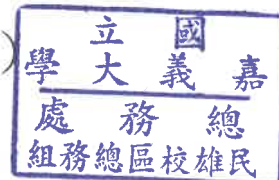 國立
嘉義大學
總務處
民雄校區總務組